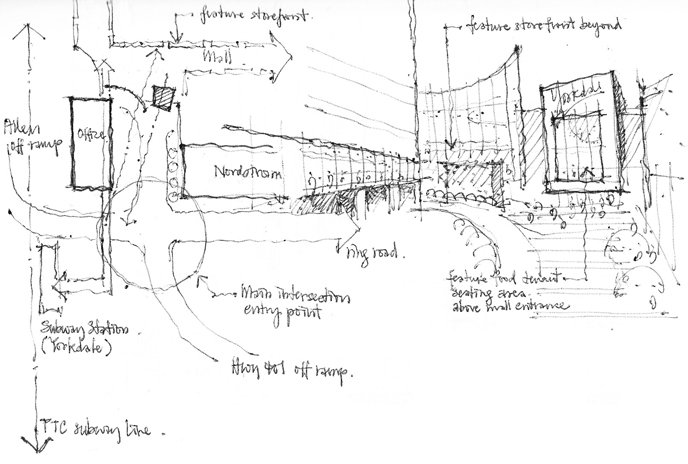 feature storefront.
feature storefront beyond
Mall
Yorkdale
Allen
off ramp
Office
Nordstrom
ring road.
feature food tenant
seating area
above mall entrance
Main intersection
entry point
Subway Station.
(Yorkdale)
Hwy 401 off ramp.
TTC subway line.